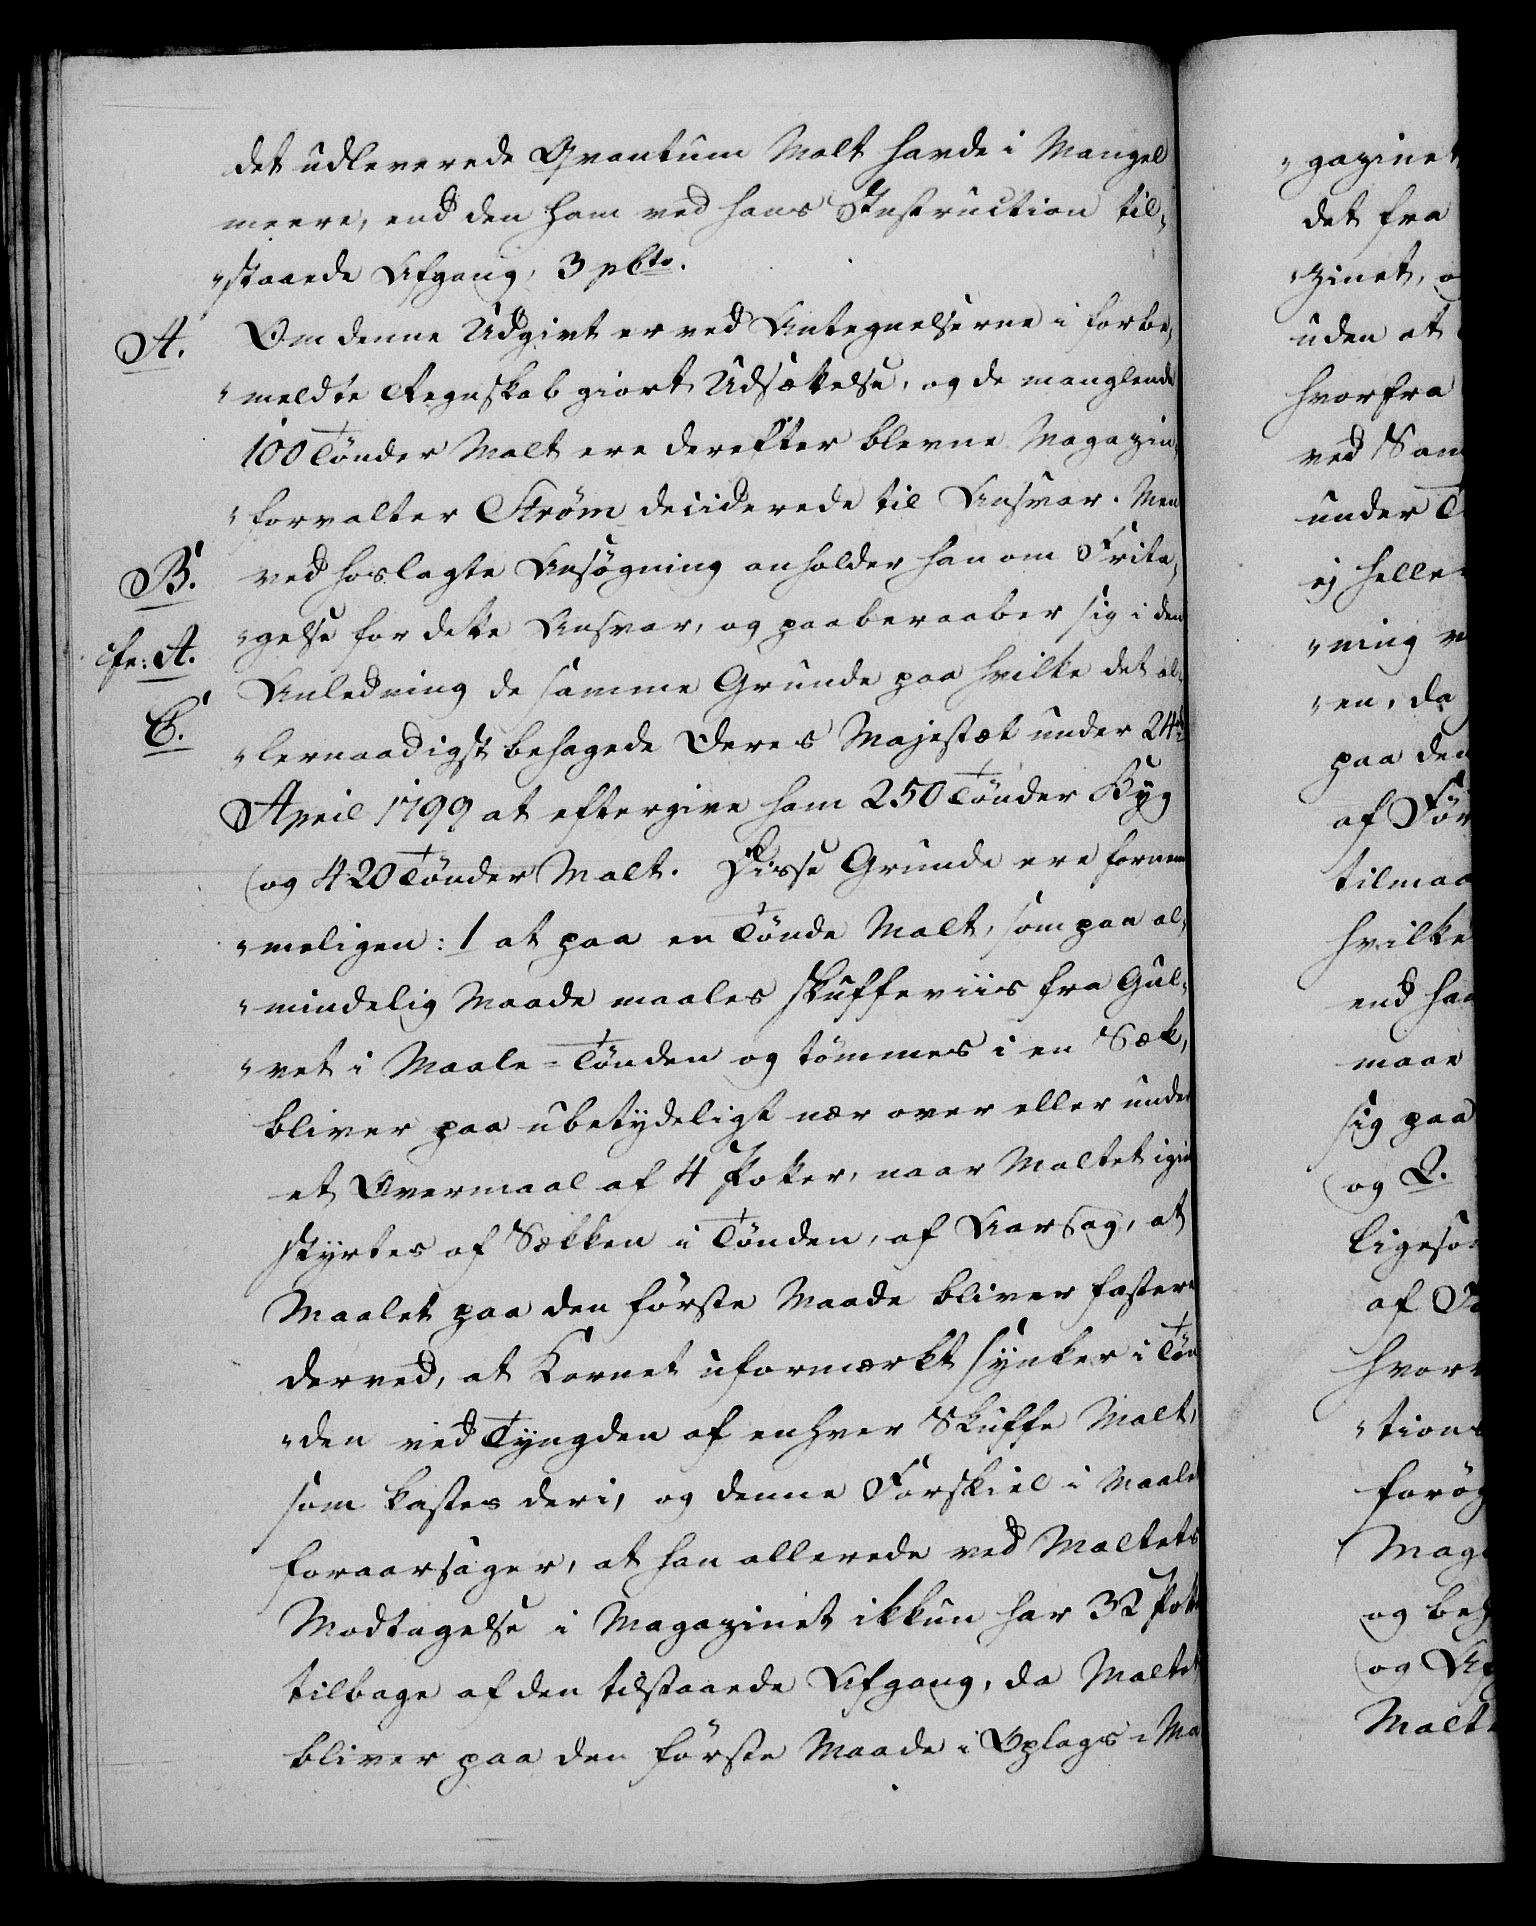 det udleverede Qvantum Malt havde i Mangel
meere, end den ham ved hans Instruction til-
"staaede Afgang, 3 pCto.
A. Om denne Udgivt er ved Antegnelserne i forbe-
"meldte Regnskab giort Udsættelse, og de manglende
100 Tønder Malt ere derefter blevne Magazin-
"forvalter Strøm deciderede til Ansvar. Men
B. ved hoslagte Ansøgning anholder han om Frita-
"gelse for dette Ansvar, og paaberaaber sig i den
cfr: A. Anledning de samme Grunde paa hvilke det al-
C. "lernaadigst behagede Deres Majestæt under 24de
April 1799 at eftergive ham 250 Tønder Byg
og 420 Tønder Malt. Disse Grunde ere fornem
"meligen: 1 at paa en Tønde Malt, som paa al-
"mindelig Maade maales skuffeviis fra Gul-
"vet i Maale-Tønden og tømmes i en Sæk,
bliver paa ubetydeligt nær over eller under
et Overmaal af 4 Potter, naar Maltet igien
styrtes af Sækken i Tønden, af Aarsag, at
Maalet paa den første Maade bliver fastere
derved, at Kornet uformærkt synker i Tøn
"den ved Tyngden af enhver Skuffe Malt,
som kastes deri, og denne Forskiel i Maalet
foraarsager, at han allerede ved Maltets
Modtagelse i Magazinet ikkun har 32 Potter
tilbage af den tilstaaede Afgang, da Maltet
bliver paa den første Maade i Oplags-Ma
"gazinet
det fra
"zinet, o
uden at
hvorfra
ved Sam
under T
ej helle
"ning
"en, da
paa den
af Før
tilmaa
hvilke
end ha
maae
sig paa
og 2.
ligeso
af
hvor
"tions
forøg
Mag
og be
og Af
Malt